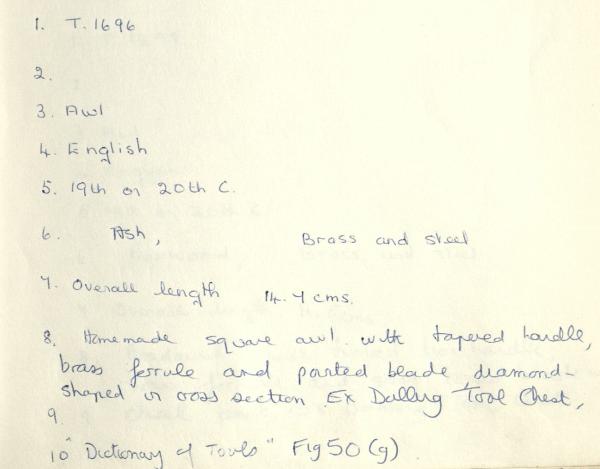 1. T.1696
2.
3. Awl
4. English
5. 19th or 20th C.
6. Ash, Brass and steel
7. Overall length 14.7 cms.
8. Homemade square awl with tapered handle,
brass ferrule and pointed blade, diamond-
shaped in cross section. Ex Dalling Tool Chest,
9.
10 "Dictionary of Tools" Fig 50 (g)